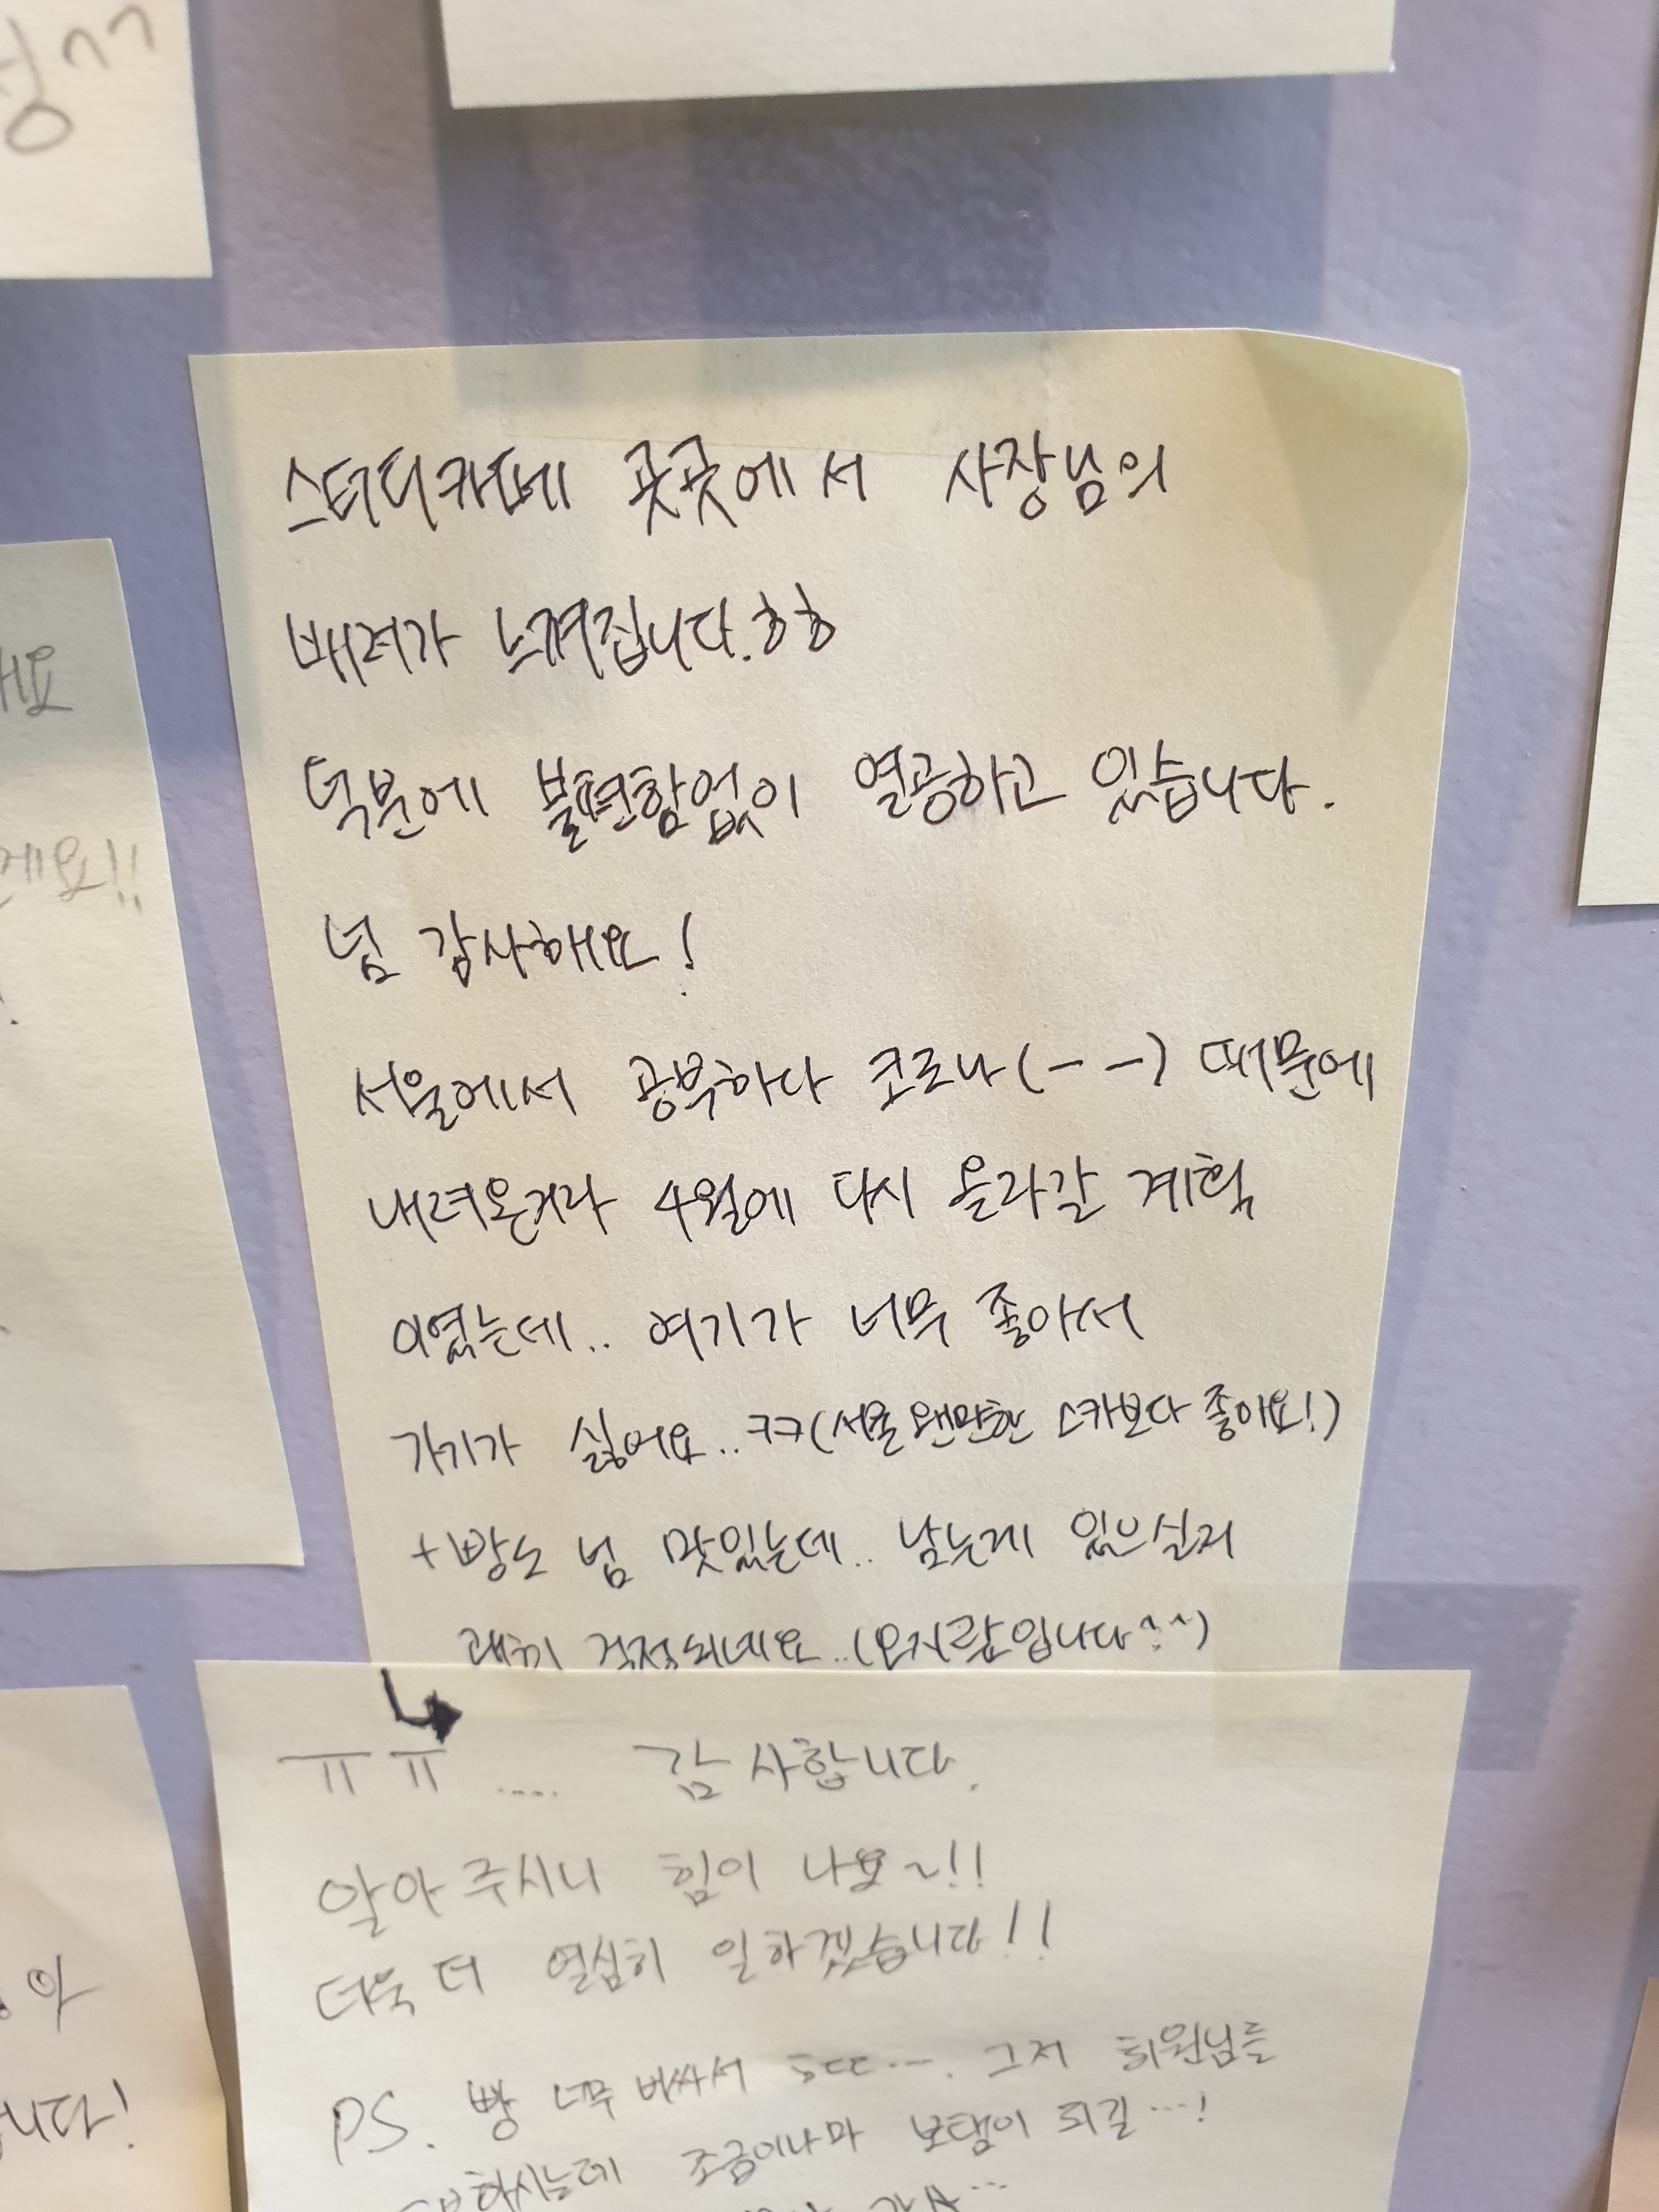 스터디카페 곳곳에서 사장님의
배려가 느껴집니다.ㅎㅎ
덕분에 불편함없이 열공하고 있습니다.
넘 감사해요!
서울에서 공부하다 코로나(--) 때문에
내려온거라 4월에 다시 올라갈 계획
이였는데.. 여기가 너무 좋아서
가기가 싫어요..ㅋㅋ(서울 왠만한 스카보다 좋아요!)
+빵도 넘 맛있는데.. 남는게 있으실지
괜히 걱정되네요..(오지랖입니다^^)
ㅠㅠ .... 감사합니다.
알아주시니 힘이 나요~!!
더욱 더 열심히 일하겠습니다!!
PS. 빵 너무 비싸서 ㅎㄷㄷ.... 그저 회원님들
하시는데 조금이나마 보탬이 되길...!
해요
네요!!
니다!